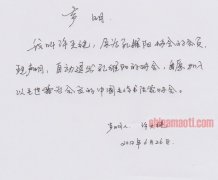 声明
我叫许天晓，原为孔维阳协会的会员，
现声明，自动退出孔维阳的协会，自愿加入
以
为会长的中国毛体书法家协会。
chinamaoti.com
声明人：许天晓
2012年6月26日